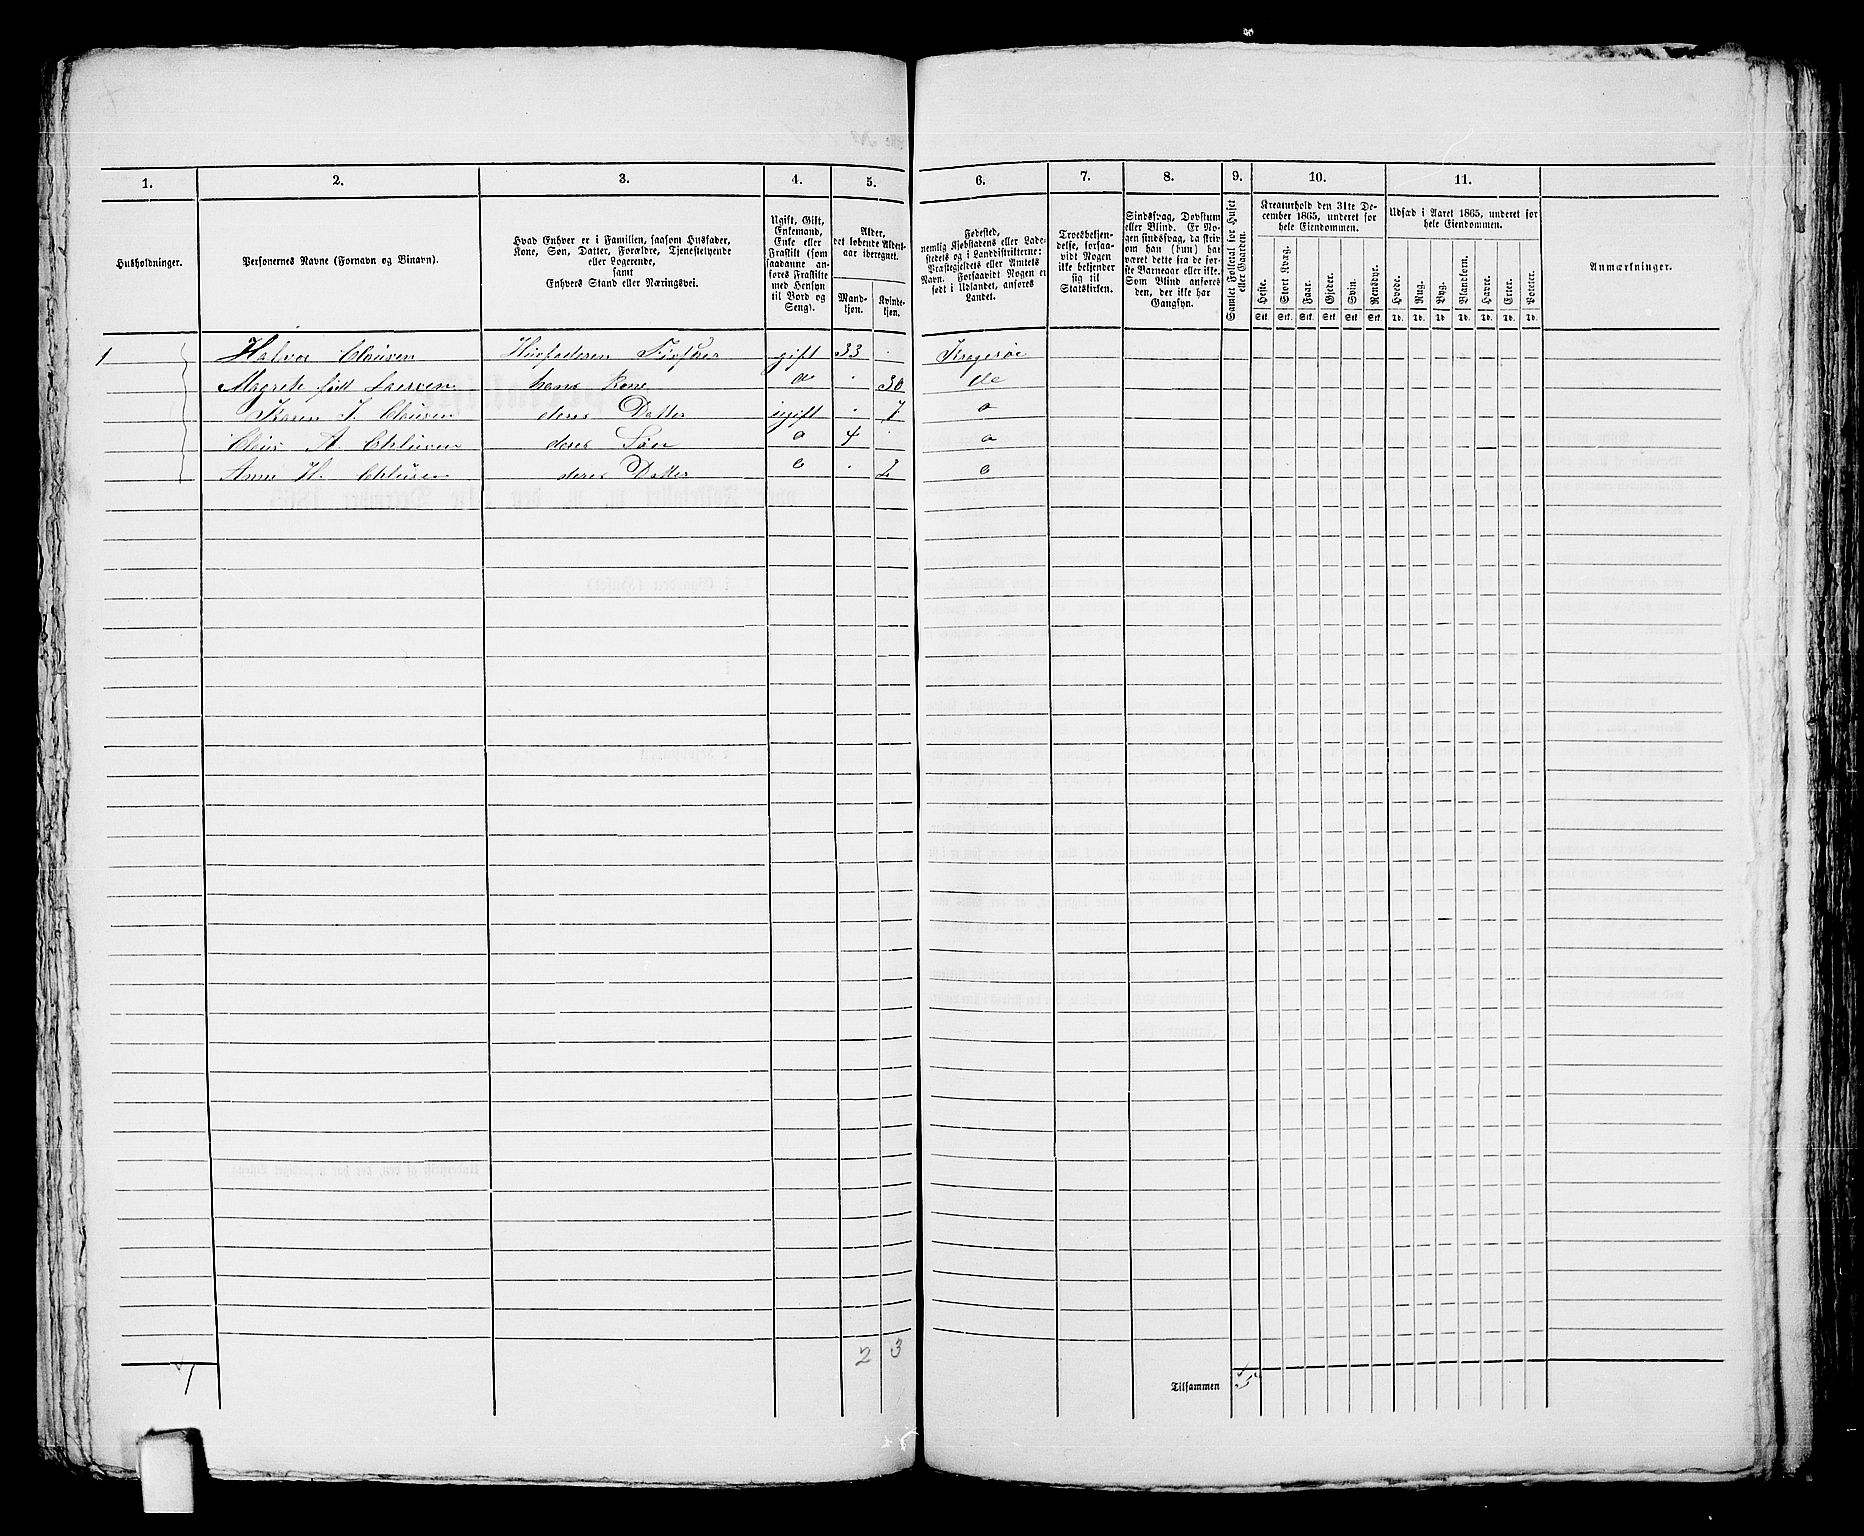 1. 2. 3. 4. 5. 6. 7. 8. 9. 10. 11.
Husholdninger.
Personernes Navne (Fornavn og Binavn).
Hvad Enhver er i Familien, saasom Husfader,
Kone, Søn, Datter, Forældre, Tjenestetyende
eller Logerende,
samt
Enhvers Stand eller Næringsvei.
Ugift, Gift,
Enkemand,
Enke eller
Fraskilt (som
saadanne an-
føres Fraskilte
med Hensyn
til Bord og
Seng).
Alder,
det løbende Alders-
aar iberegnet.
Mand-
kjøn.
Kvinde-
kjøn.
Fødested,
nemlig Kjøbstadens eller Lade-
stedets og i Landdistrikterne:
Præstegjeldets eller Amtets
Navn. Forsaavidt Nogen er
født i Udlandet, anføres
Landet.
Troesbekjen-
delse, forsaa-
vidt Nogen
ikke bekjender
sig til
Statskirken.
Sindssvag, Døvstum
eller Blind. Er No-
gen sindssvag, da skriv
om han (hun) har
været dette fra de før-
ste Barneaar eller ikke.
Som Blind anføres
den, der ikke har
Gangsyn.
Samlet Folketal for Huset
eller Gaarden.
Kreaturhold den 31te De-
cember 1865, underet for
hele Eiendommen.
Heste. Stort Kvæg. Faar. Gjeder. Svin. Rensdyr.
Stk. Stk. Stk. Stk. Stk. Stk.
Udsæd i Aaret 1865, underet for
hele Eiendommen.
Hvede. Rug. Byg. Blandkorn. Havre. Erter. Poteter.
Td. Td. Td. Td. Td. Td. Td.
Anmærkninger.
1 Halvor Clausen Husfaderen gift 33 . Kragerøe
Magrete født Larsen hans Kone o . 30 do
Karen J. Clausen deres Datter ugift . 7 o
Claus A. deres Søn o 4 . o
Anne H. deres Datter o . 2 o
2 3
1
Tilsammen 5